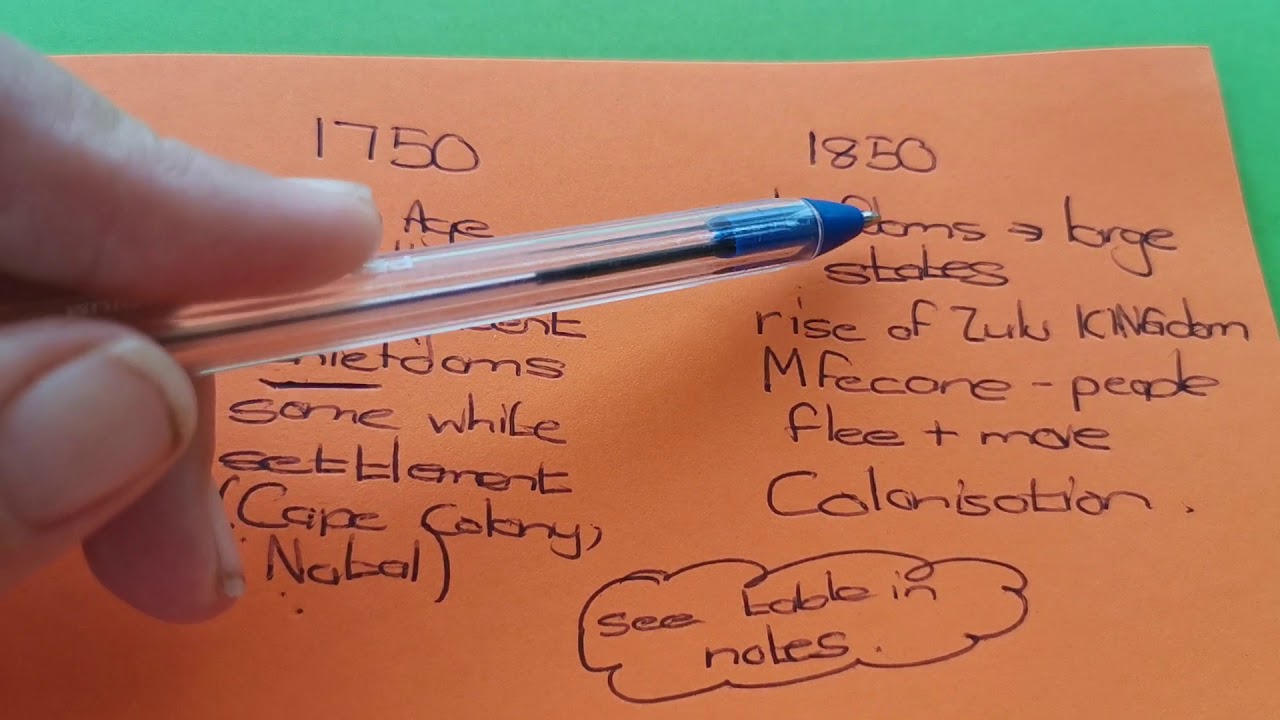 1750
Age
chiefdoms
some white
settlement
(Cape Colony,
Natal)
1850
→ large
states
rise of Zulu KINGdom
Mfecane - people
flee + move
Colonisation.
see table in
notes.